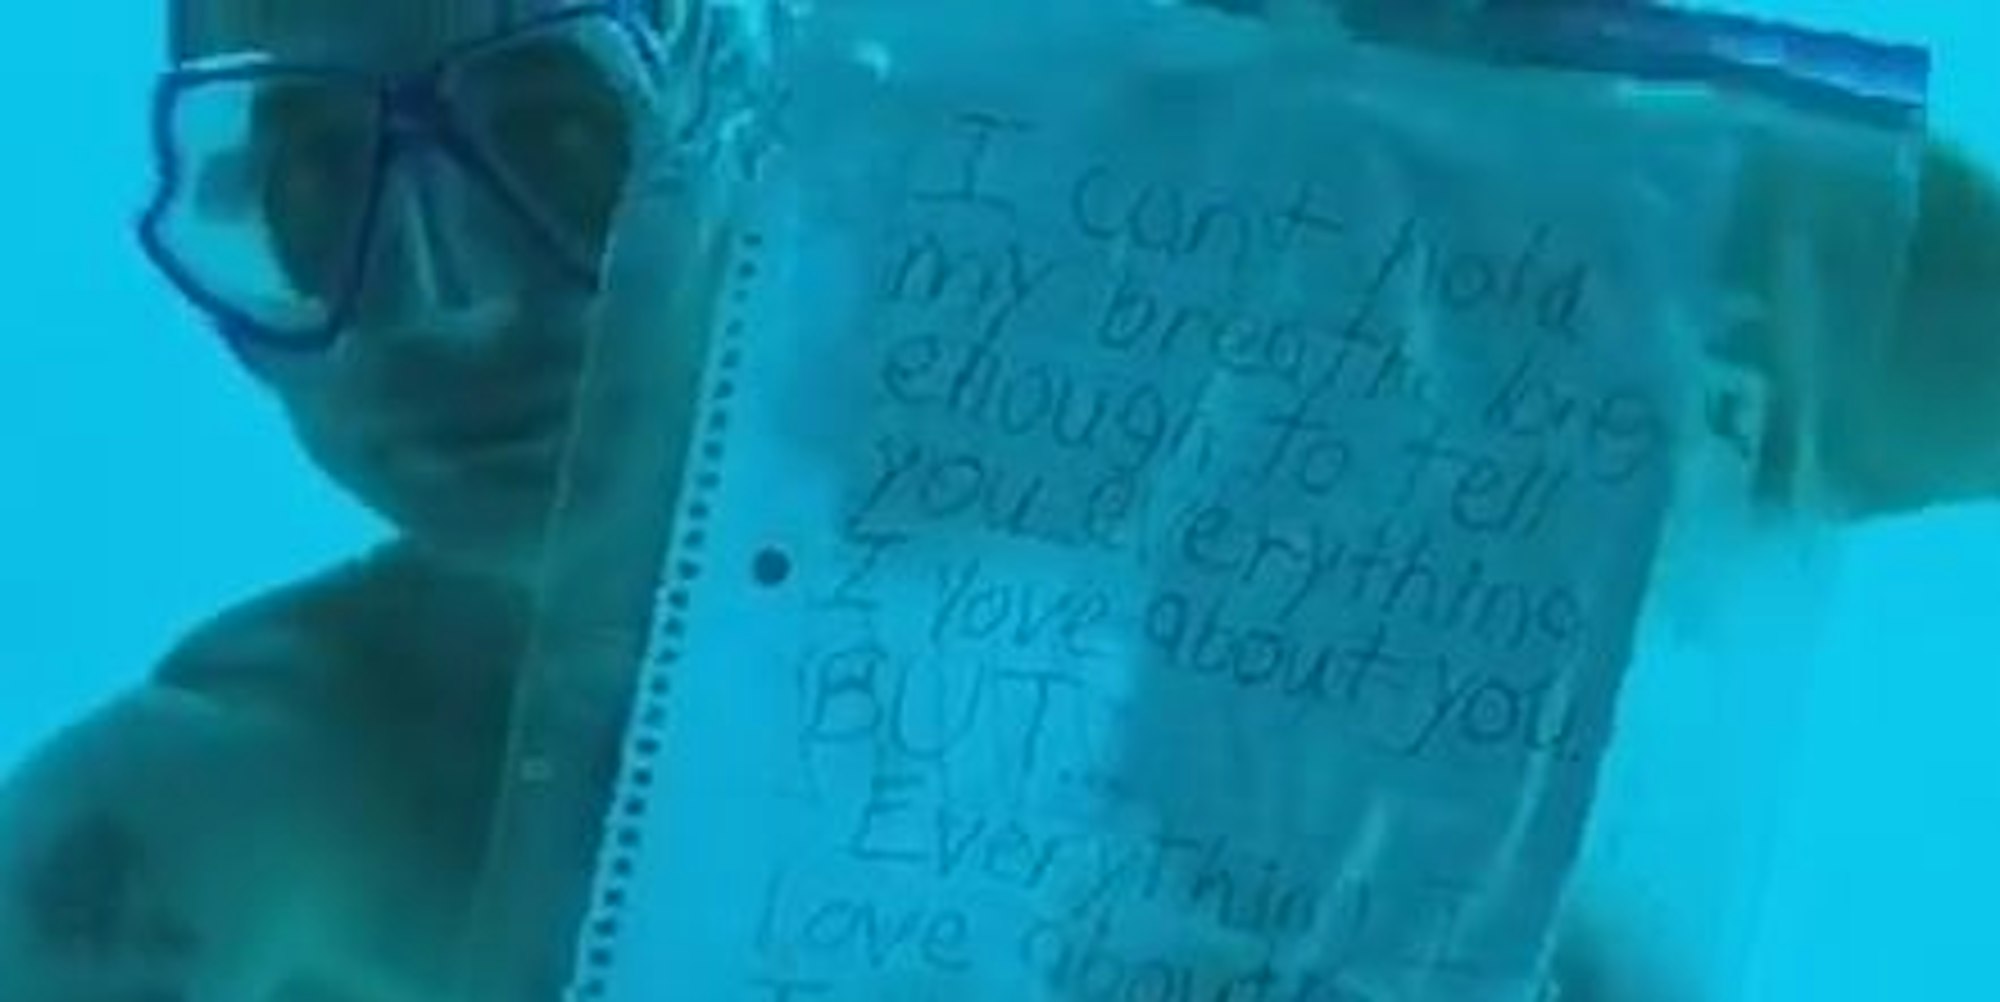 I can't hold
my breath long
enough to tell
you everything
I love about you.
BUT...
Everything I
love about
I